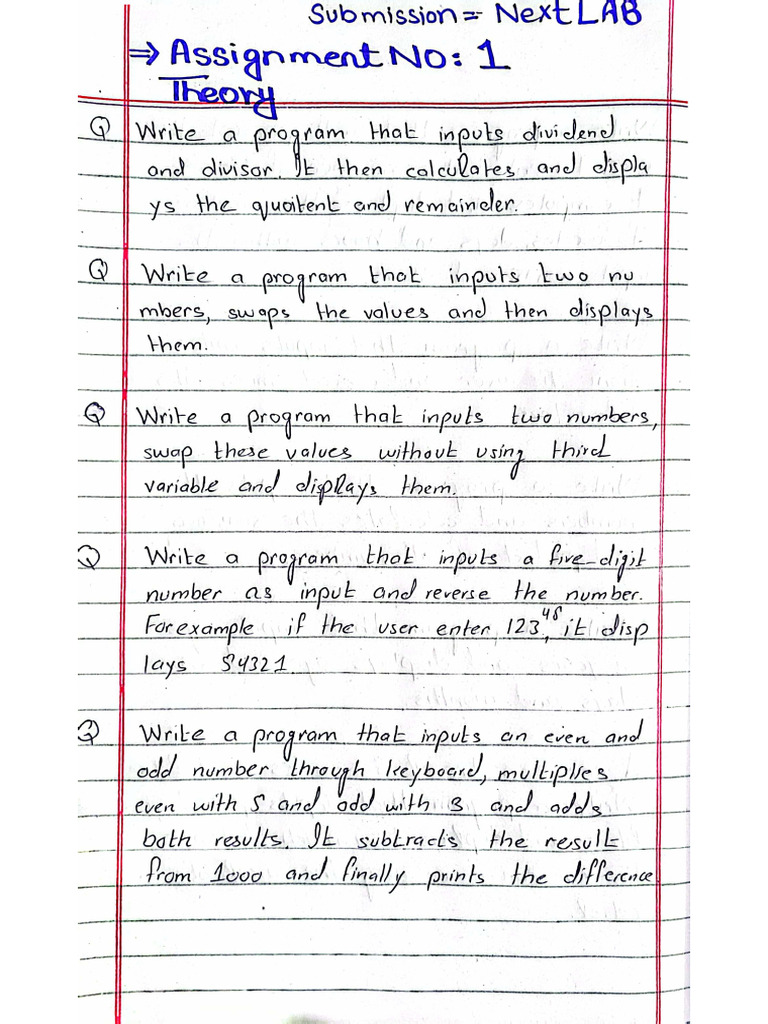 Submission = Next LAB
⇒ Assignment No: 1
Theory
Q Write a program that inputs dividend
and divisor. It then calculates and displa
ys the quoitent and remainder.
Q Write a program that inputs two nu
mbers, swaps the values and then displays
them.
Q Write a program that inputs two numbers,
swap these values without using third
variable and displays them.
Q Write a program that inputs a five-digit
number as input and reverse the number.
For example, if the user enter 12345, it disp
lays 54321.
Q Write a program that inputs an even and
odd number through keyboard, multiplies
even with 5 and odd with 3 and adds
both results. It subtracts the result
from 1000 and finally prints the difference